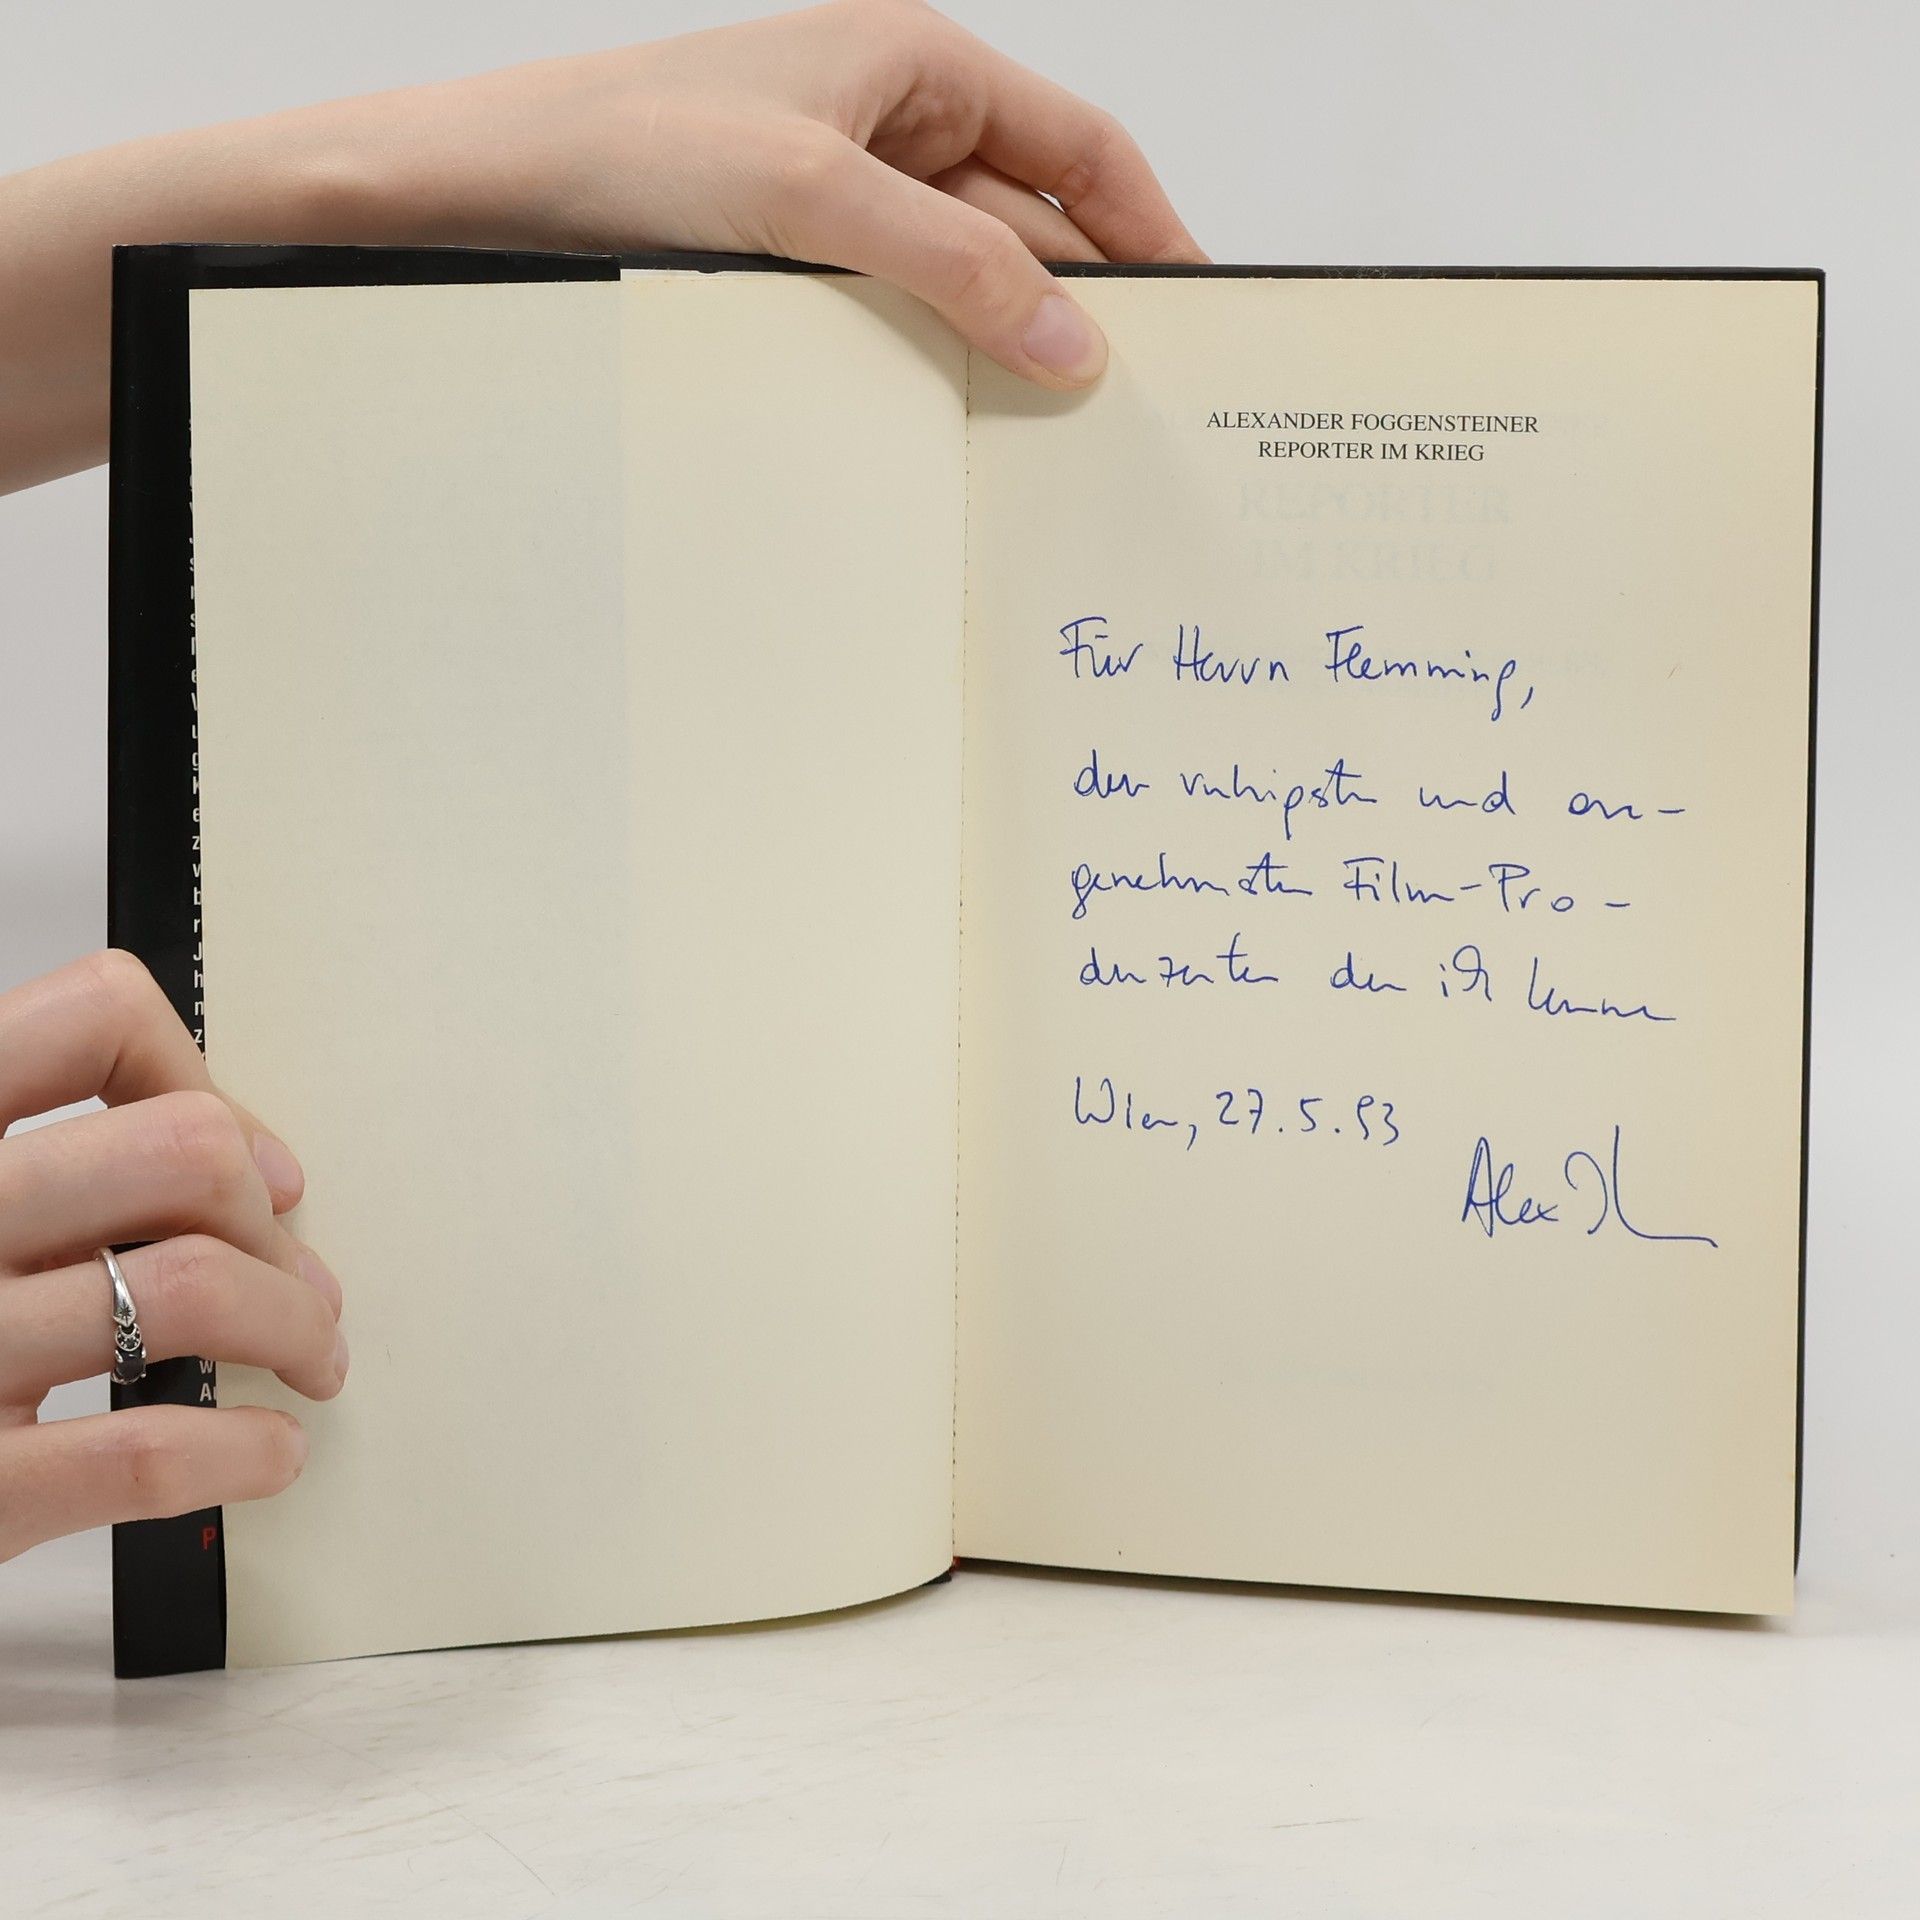 ALEXANDER FOGGENSTEINER
REPORTER IM KRIEG
REPORTER
IM KRIEG
Für Herrn Flemming,
den ruhigsten und an-
genehmsten Film-Pro-
duzenten den ich kenne
Wien, 27.5.93
Alex